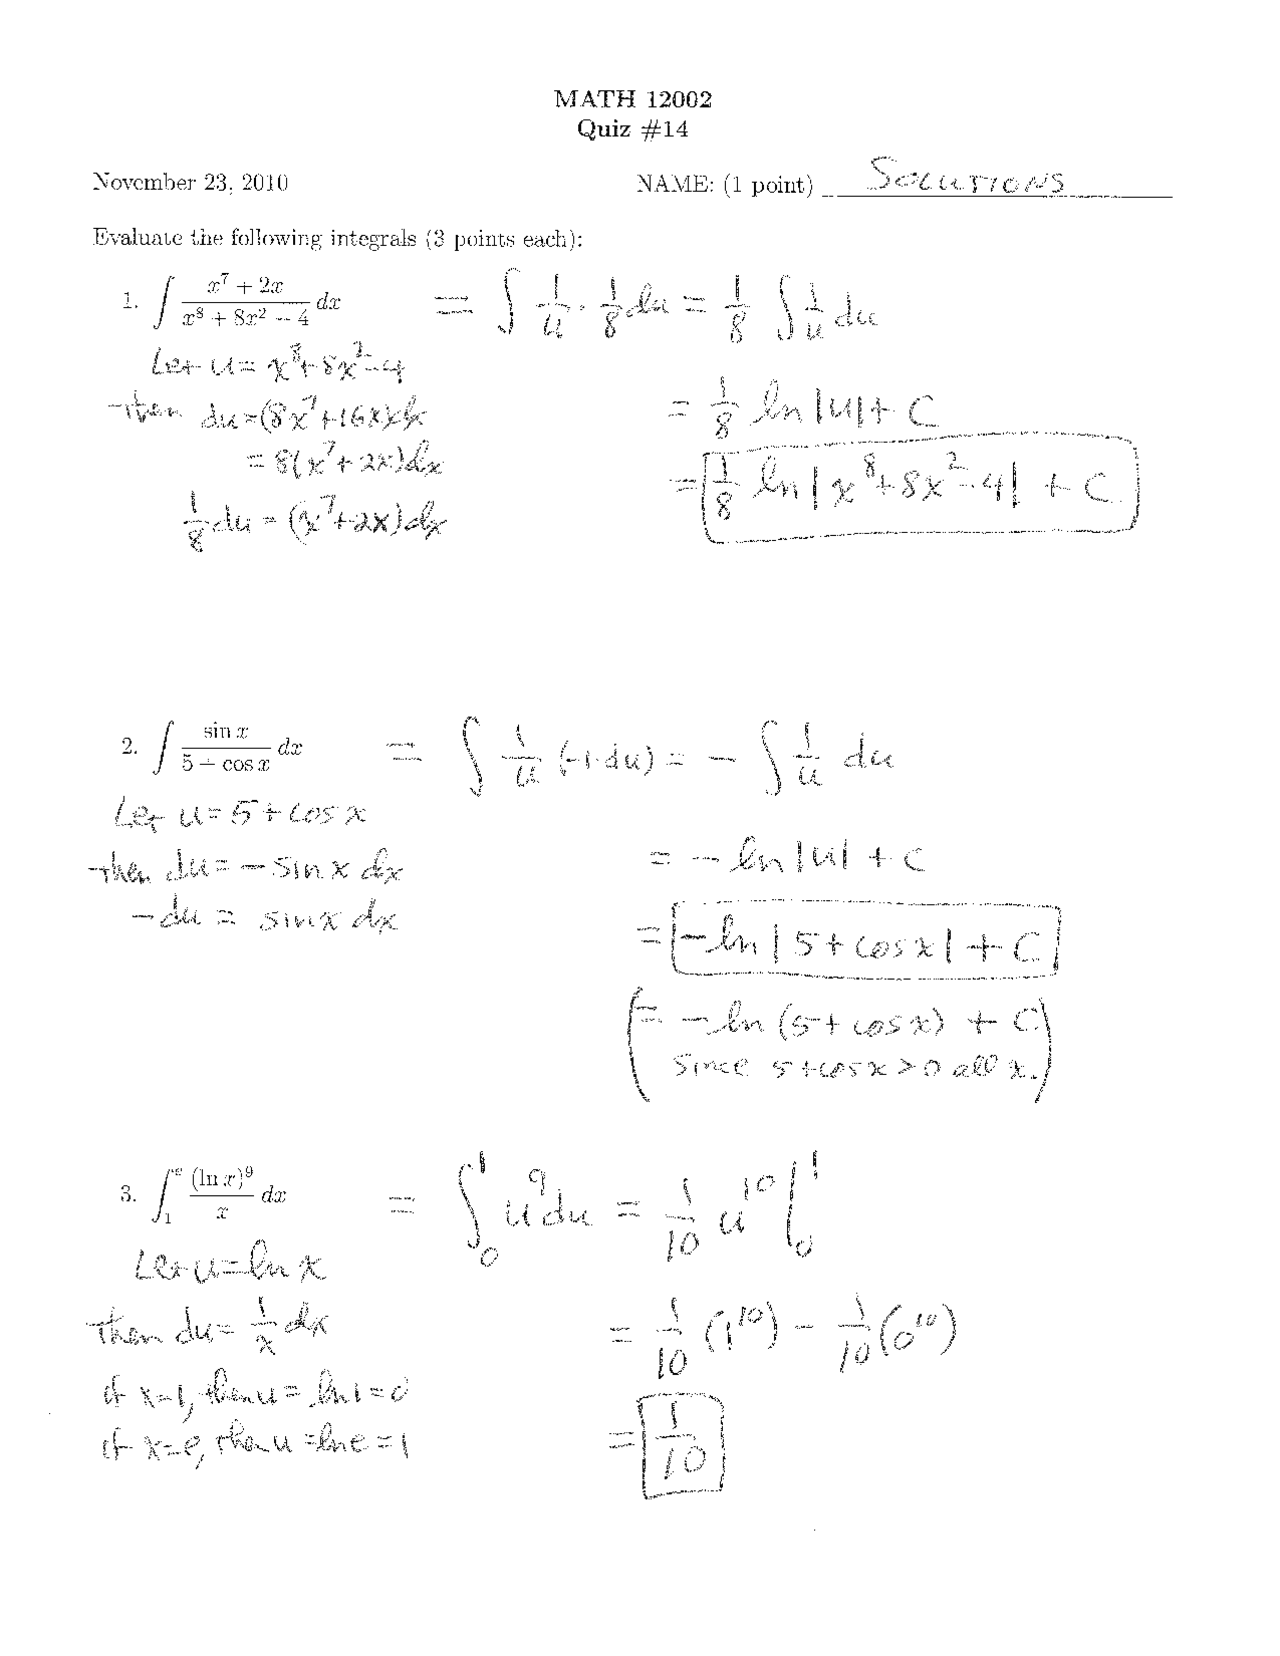 MATH 12002
Quiz #14
November 23, 2010 NAME: (1 point) SOLUTIONS
Evaluate the following integrals (3 points each):
1. ∫ (x⁷ + 2x)/(x⁸ + 8x² − 4) dx = ∫ 1/u · 1/8 du = 1/8 ∫ 1/u du
Let u = x⁸+8x²-4
then du = (8x⁷+16x)dx = 1/8 ln|u| + C
= 8(x⁷+2x)dx = 1/8 ln|x⁸+8x²-4| + C
1/8 du = (x⁷+2x)dx
2. ∫ sin x/(5 + cos x) dx = ∫ 1/u (-1·du) = - ∫ 1/u du
Let u = 5 + cos x
then du = - sin x dx = - ln|u| + C
-du = sin x dx = -ln|5+cos x| + C
(= -ln (5+cos x) + C
since 5+cos x > 0 all x.)
3. ∫₁ᵉ (ln x)⁹/x dx = ∫₀¹ u⁹ du = 1/10 u¹⁰ |₀¹
Let u = ln x
then du = 1/x dx = 1/10 (1¹⁰) - 1/10 (0¹⁰)
if x=1, then u = ln 1 = 0
if x=e, then u = ln e = 1 = 1/10